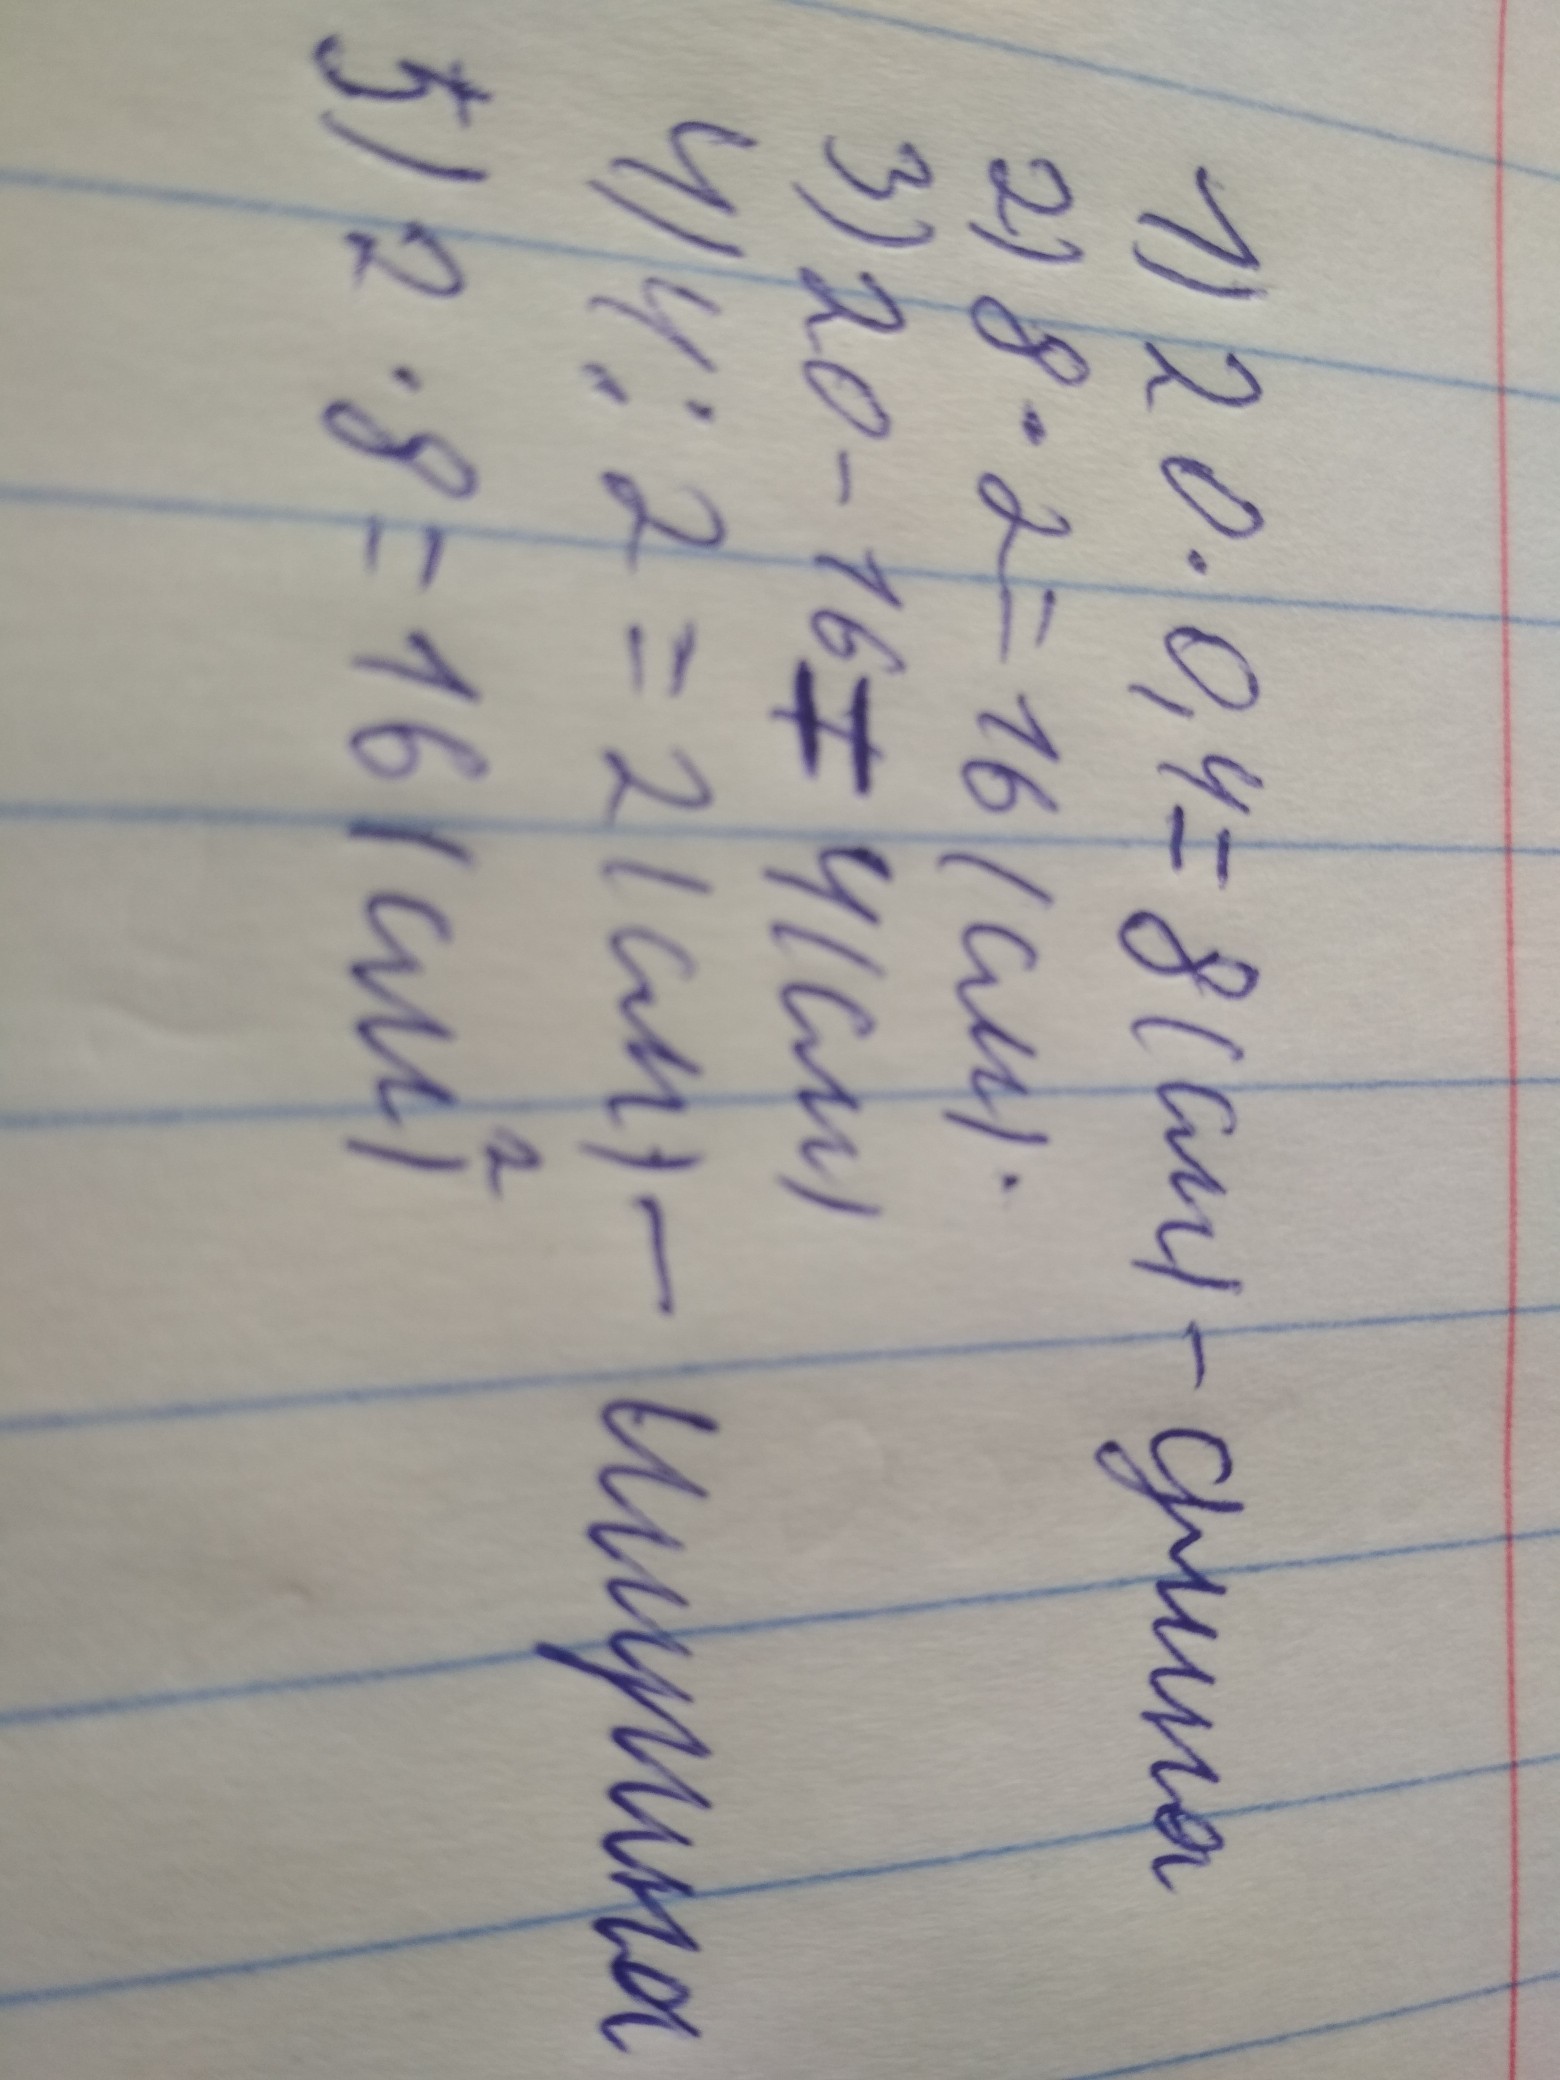 1) 20 · 0,4 = 8 (см) - длина
2) 8 · 2 = 16 (см).
3) 20 - 16 = 4 (см)
4) 4 : 2 = 2 (см) - ширина
5) 2 · 8 = 16 (см)²